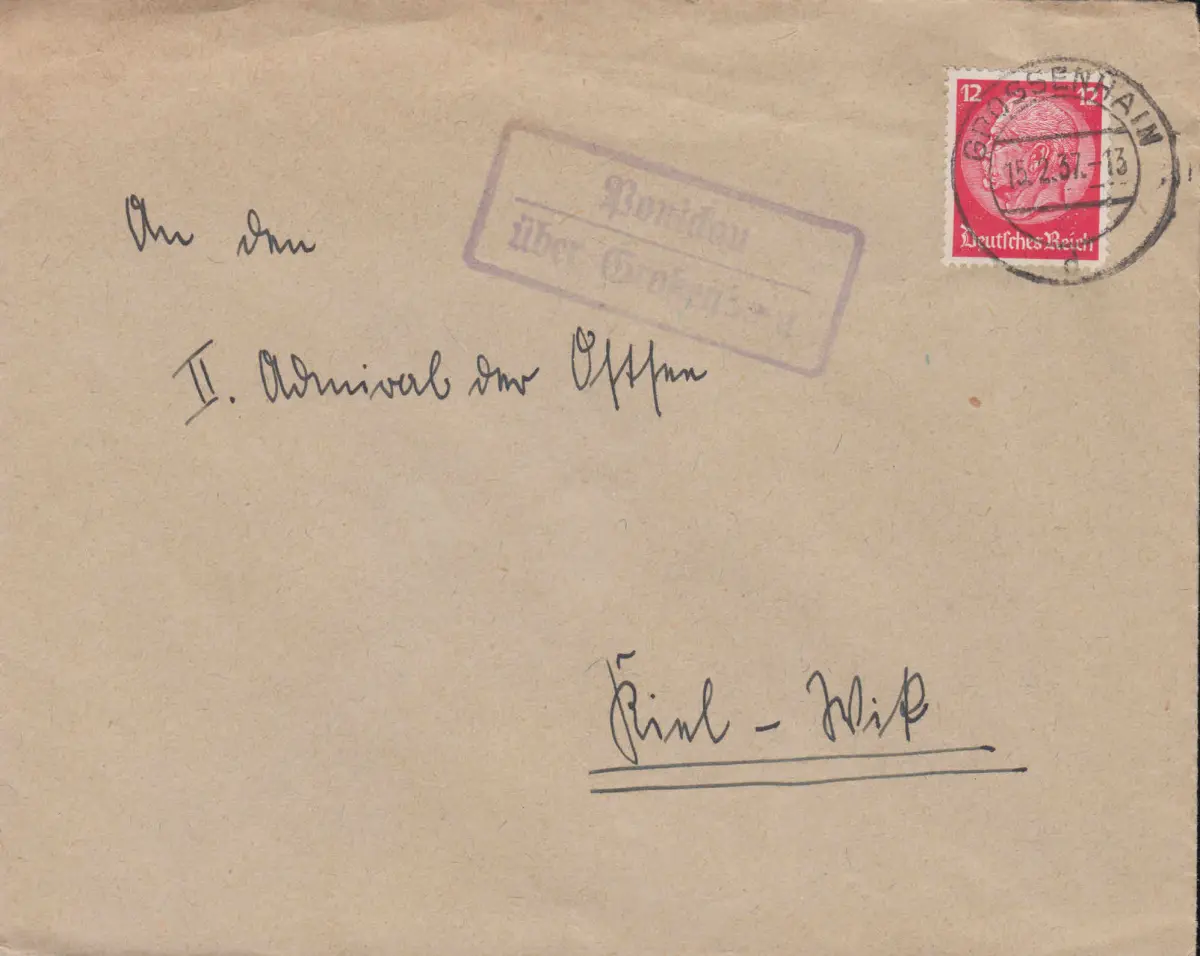 12 12
Deutsches Reich
GROSSENHAIN
15.2.37.-13
d
Ponickau
über Großenhain
An den
II. Admiral der Ostsee
Kiel - Wik